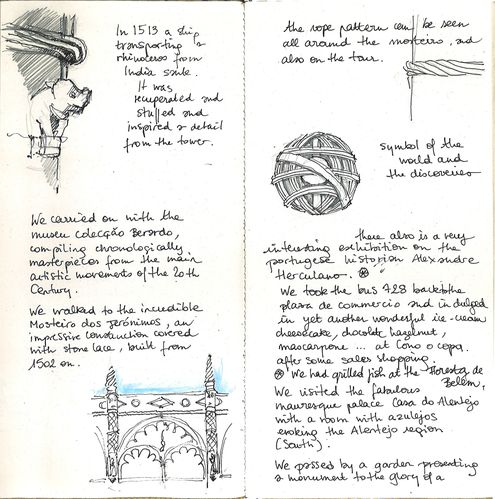 In 1513 a ship
transporting a
rhinoceros from
India sank.
It was
recuperated and
stuffed and
inspired a detail
from the tower.
We carried on with the
museu colecção Berardo,
compiling chronologically
masterpieces from the main
artistic movements of the 20th
Century.
We walked to the incredible
Mosteiro dos Jerónimos, an
impressive construction covered
with stone lace, built from
1502 on.
the rope pattern can be seen
all around the mosteiro, and
also on the tour.
symbol of the
world and
the discoveries
there also is a very
interesting exhibition on the
portugese historian Alexandre
Herculano. ⊛
We took the bus 728 back to the
plaza de commercio and indulged
in yet another wonderful ice-cream
cheesecake, chocolate hazelnut,
mascarpone ... at Cono o copa.
after some sales shopping.
⊛ We had grilled fish at the Floresta de
Belem.
We visited the fabulous
mauresque palace Casa do Alentejo
with a room with azulejos
evoking the Alentejo region
(South).
We passed by a garden presenting
a monument to the glory of a